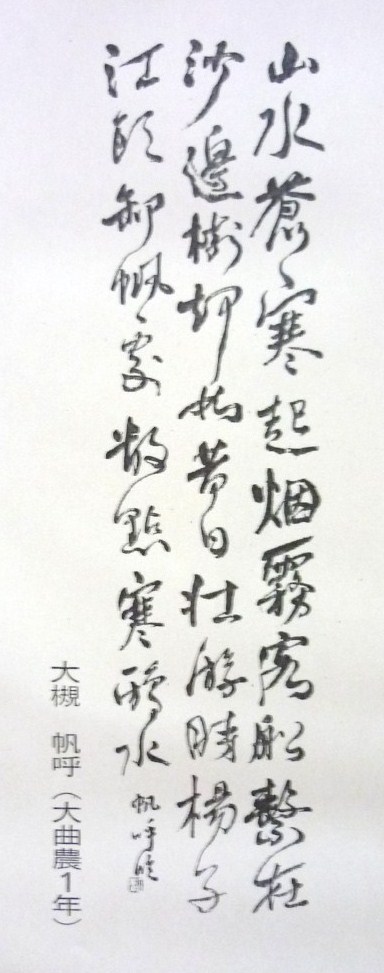 山水蒼寒起烟霧客船繫在
沙邊樹却如昔日壮游時楊子
江頭卸帆處數點寒鴉水
帆呼臨
大槻　帆呼（大曲農1年）